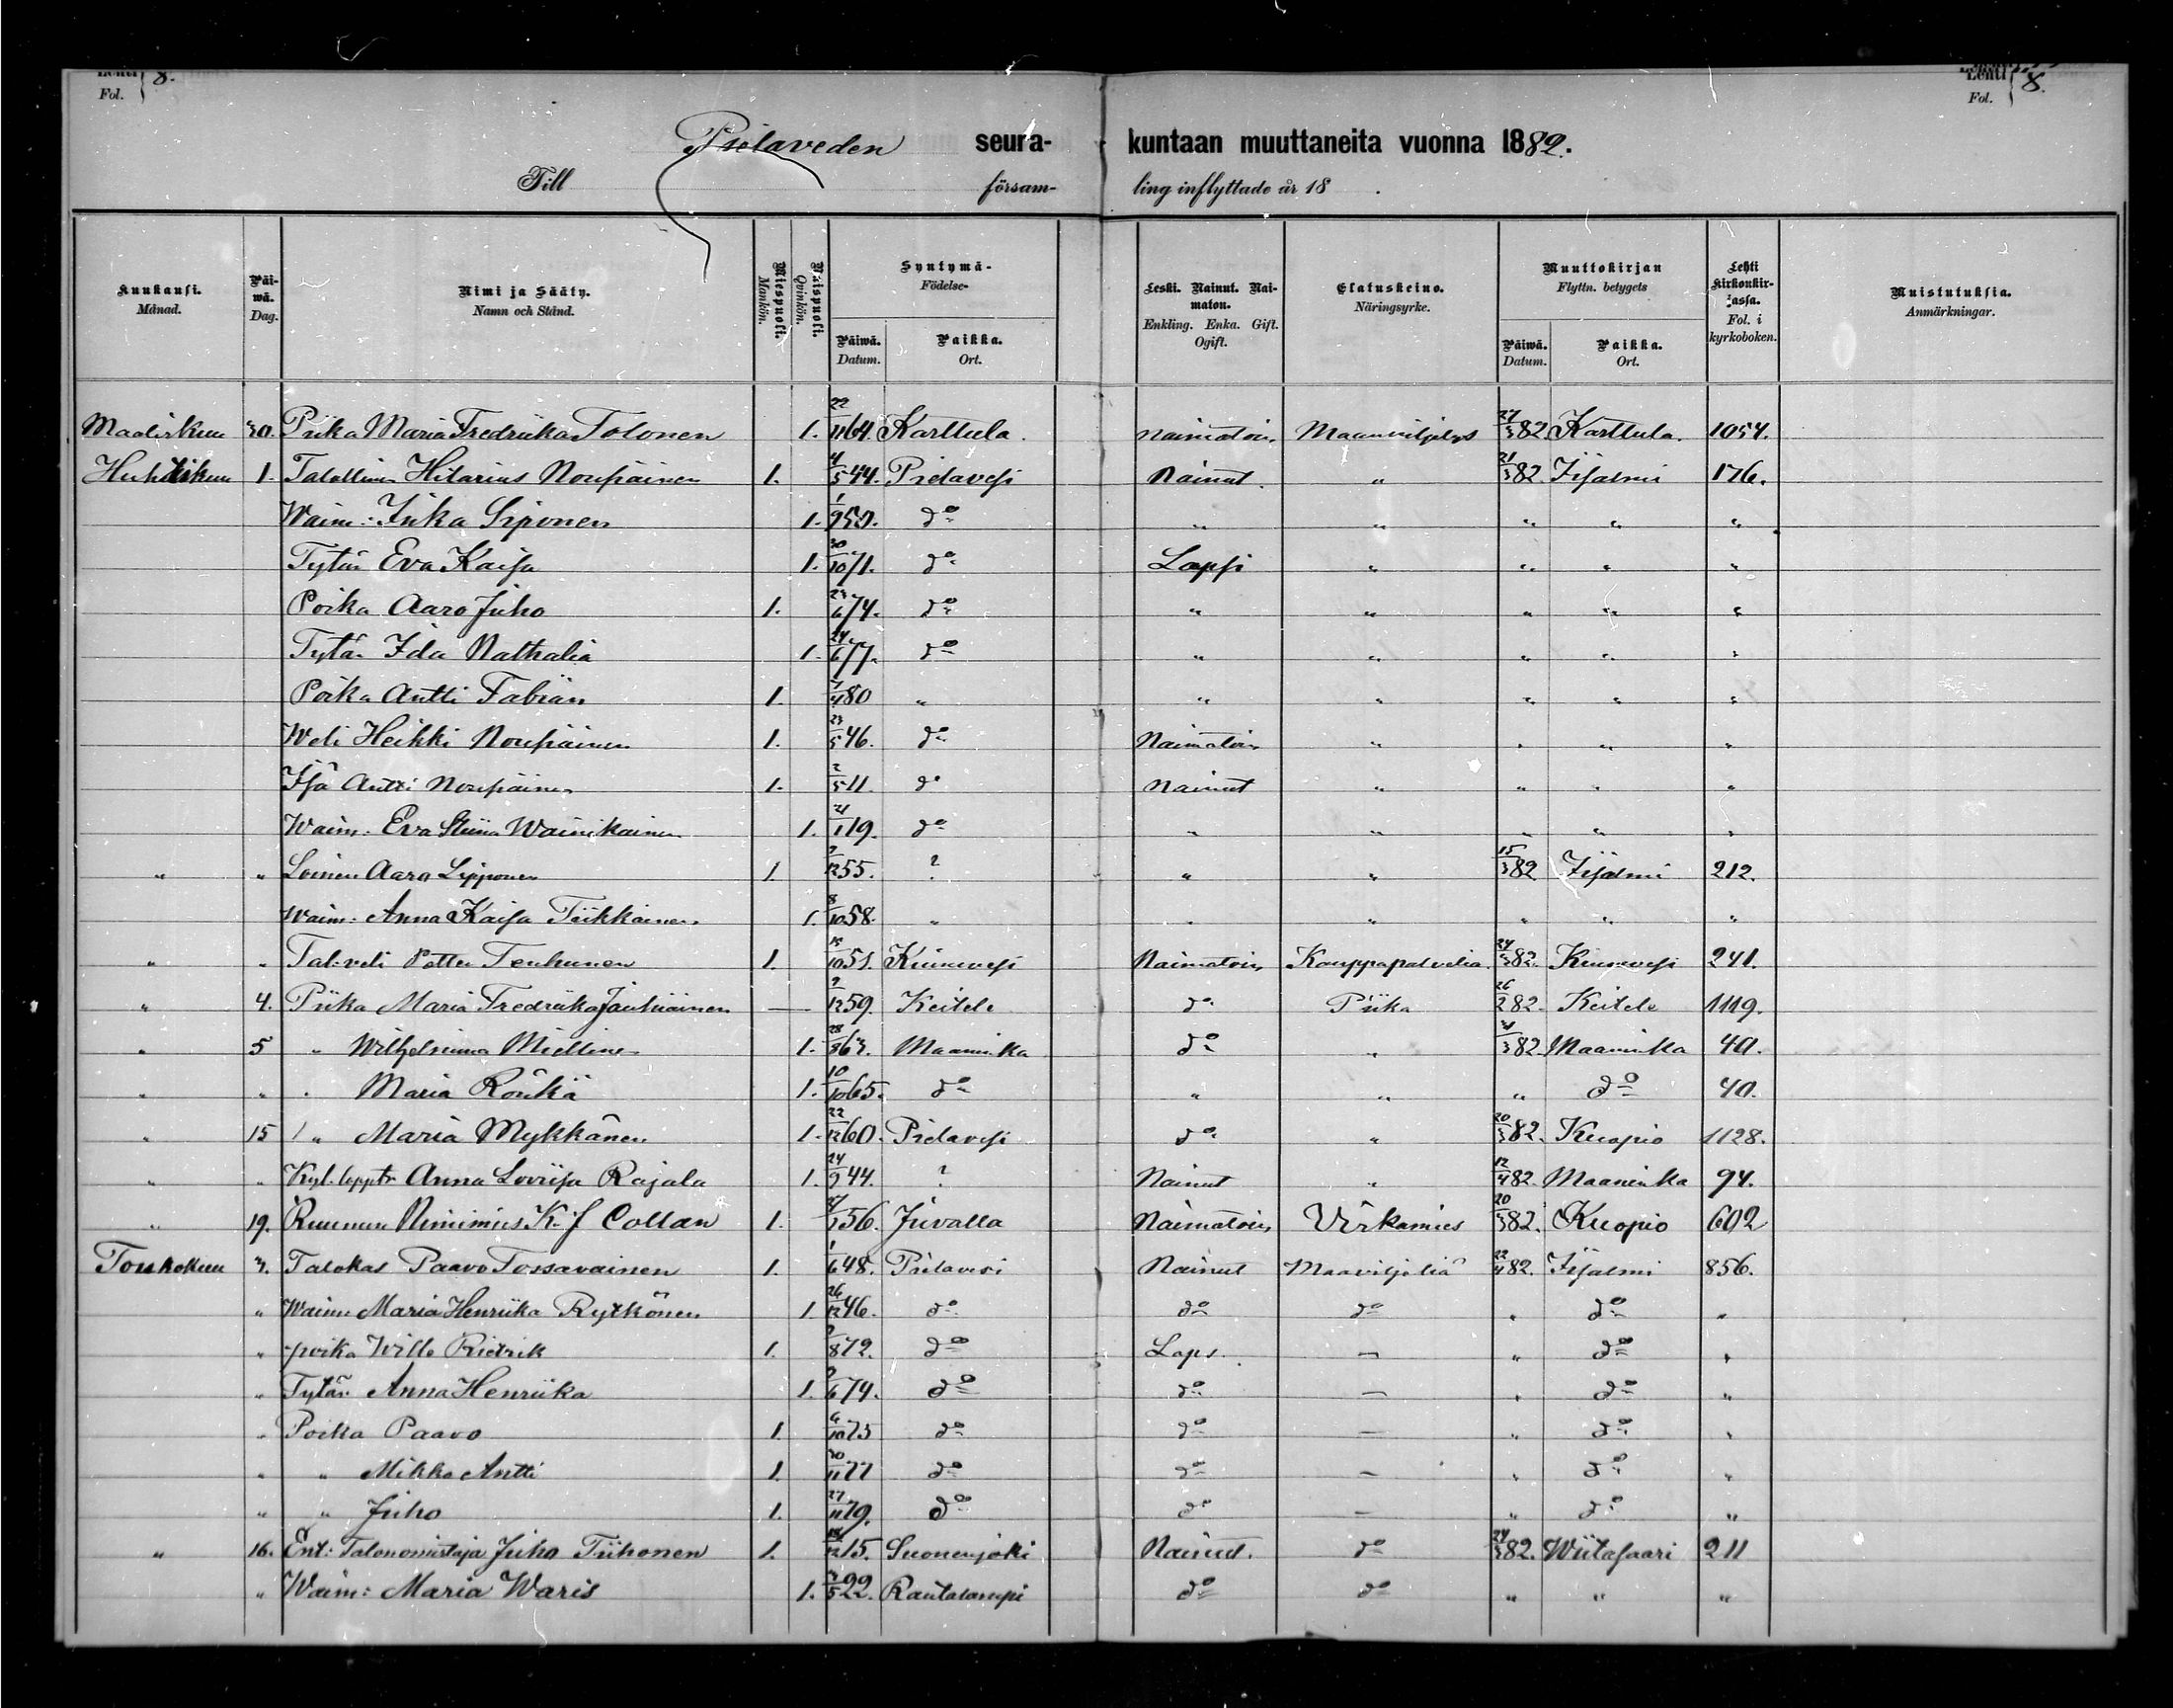 Lehti Fol. 8. Lehti Fol. 8.
Pielaveden seura- kuntaan muuttaneita vuonna 1882.
Till försam- ling inflyttade år 18 .
Kuukausi. Månad. Päiwä. Dag. Nimi ja Sääty. Namn och Stånd. Miespuoli. Mankön. Waimopuoli. Qvinkön. Syntymä- Födelse- Päiwä. Datum. Paikka. Ort. Leski. Nainut. Naimaton. Enkling. Enka. Gift. Ogift. Elatuskeino. Näringsyrke. Muuttokirjan Flyttn. betygets Päiwä. Datum. Paikka. Ort. Lehti Kirkonkirjassa. Fol. i kyrkoboken. Muistutuksia. Anmärkningar.
Maaliskuu 30. Piika Maria Fredriika Tolonen 1. 22/11 64. Karttula. naimatoin Maanviljelys 27/3 82 Karttula. 1054.
Huhtikuu 1. Talollinen Hilarius Noupiainen 1. 4/5 44. Pielavesi Nainut. " 21/3 82. Iisalmi 176.
Waim: Inka Siponen 1. 1/9 50. do " " " " "
Tytär Eva Kaisa 1. 30/10 71. do Lapsi " " " "
Poika Aaro Juho 1. 23/6 74. do " " " " "
Tytär Ida Nathalia 1. 24/6 77. do " " " " "
Poika Antti Fabian 1. 7/4 80 " " " " " "
Weli Heikki Noupiainen 1. 23/5 46. do Naimatoin " " " "
Isä Antti Noupiainen 1. 2/5 11. do Nainut " " " "
Waim. Eva Stiina Wainikainen 1. 21/1 19. do " " " " "
" " Loinen Aaro Lipponen 1. 7/12 55. ? " " 15/3 82 Iisalmi 212.
Waim: Anna Kaisa Tiikkainen. 1. 8/10 58. " " " " " "
" " Tal: veli Petter Tenhunen 1. 15/10 51. Kiuruvesi Naimatoin Kauppapalvelia. 24/3 82. Kiuruvesi 241.
" 4. Piika Maria Fredriika Jauhiainen — 9/12 59. Keitele do Piika 26/2 82. Keitele 1119.
" 5 " Wilhelmiina Miettinen 1. 28/8 63. Maaninka do " 31/3 82. Maaninka 40.
" " " Maria Rönkä 1. 10/10 65. do " " " do 40.
" 15 " Maria Mykkänen 1. 22/12 60. Pielavesi do " 20/3 82. Kuopio 1128.
" " Kyl. lappt: Anna Loviisa Rajala 1. 24/9 44. ? Nainut " 12/4 82. Maaninka 94.
" 19. Ruunun Nimimies K. J. Collan 1. 27/1 56. Juvalla Naimatoin Virkamies 20/3 82. Kuopio 602
Toukokuu 3. Talokas Paavo Tossavainen 1. 1/6 48. Pielavesi Nainut Maaviljeliä 22/4 82. Iisalmi 856.
" Waim: Maria Henriika Rytkönen 1. 26/12 46. do do do " do "
" poika Wille Rietrik 1. 9/8 72. do Laps. — " do "
" Tytär Anna Henriika 1. 9/6 74. do do — " do "
" Poika Paavo 1. 6/10 75 do do — " do "
" " Mikko Antti 1. 30/11 77 do do — " do "
" " Juho 1. 27/11 79. do do — " do "
" 16. Ent: Talonomistaja Juho Tiihonen 1. 18/12 15. Suonenjoki Nainut. do 24/3 82. Wiitasaari 211
" Waim: Maria Waris 1. 3/5 22. Rautalampi do do " " "